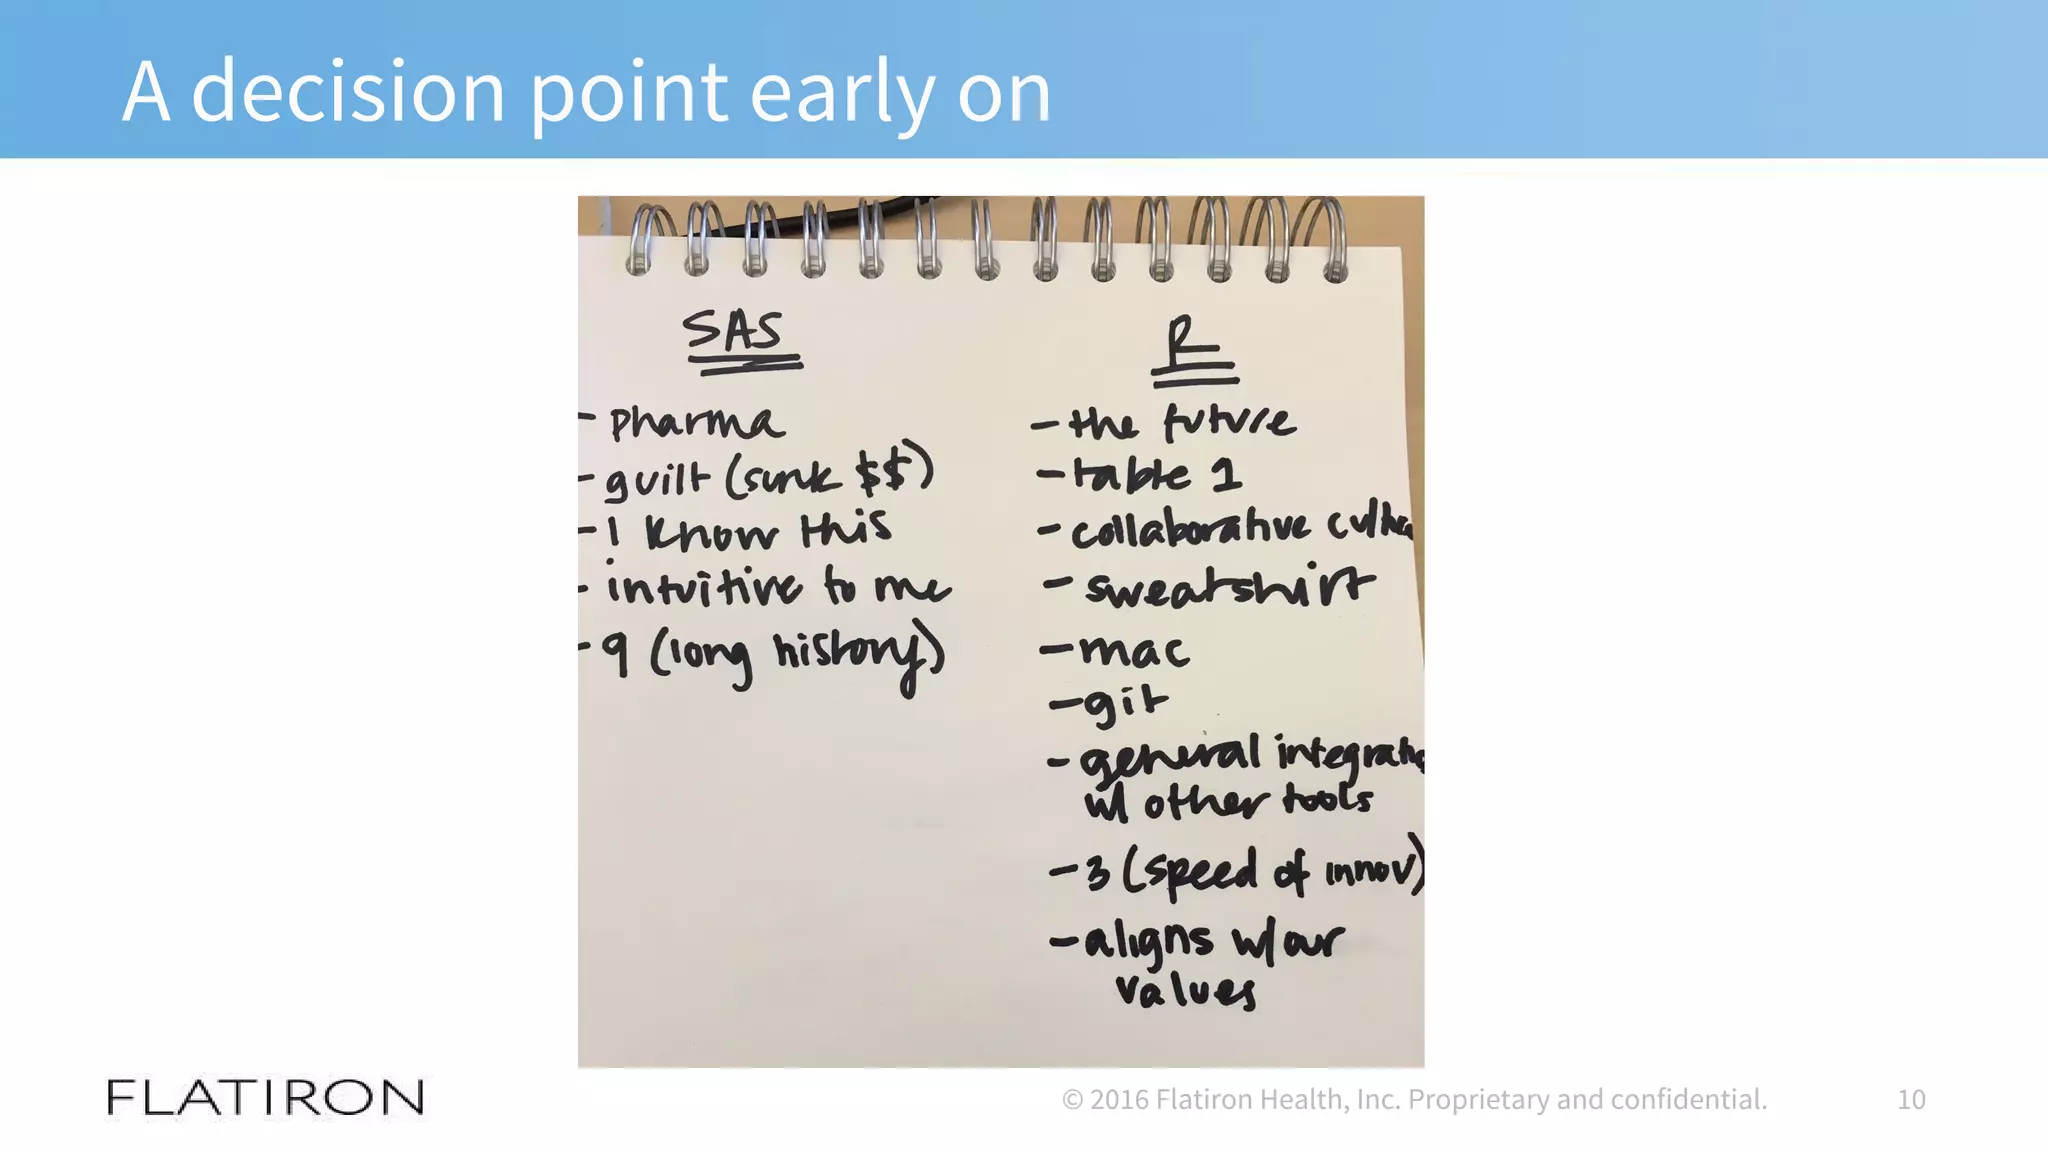 A decision point early on
SAS
- pharma
- guilt (sunk $$)
- ! know this
- intuitive to me
- 9 (long history)
R
- the future
- table 1
- collaborative
- sweatshirt
- mac
- git
- general
w/ other tools
- 3 (speed of innov)
- aligns w/our
values
FLATIRON
© 2016 Flatiron Health, Inc. Proprietary and confidential.
10